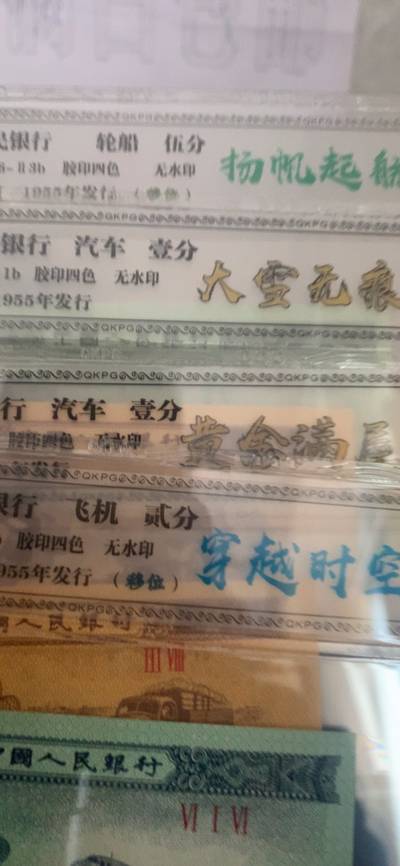 QKPG
民银行 轮船 伍分
胶印四色 无水印
1955年发行 (移位)
扬帆起航
QKPG
银行 汽车 壹分
1b 胶印四色 无水印
955年发行
大雪无痕
QKPG
行 汽车 壹分
胶印四色 无水印
黄金满
QKPG
银行 飞机 贰分
胶印四色 无水印
955年发行 (移位)
穿越时空
QKPG
国人民银行
III VIII
中國人民銀行
VI I VI